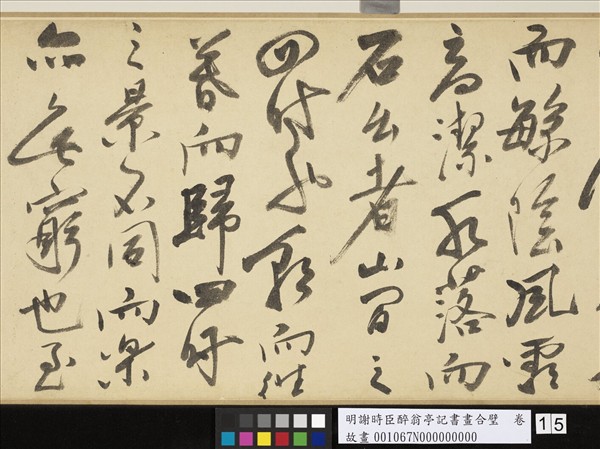 而繁陰風霜
高潔水落而
石出者山間之
四時也朝而往
暮而歸四時
之景不同而樂
亦無窮也至
明謝時臣醉翁亭記書畫合璧 卷
故畫 001067N000000000
15